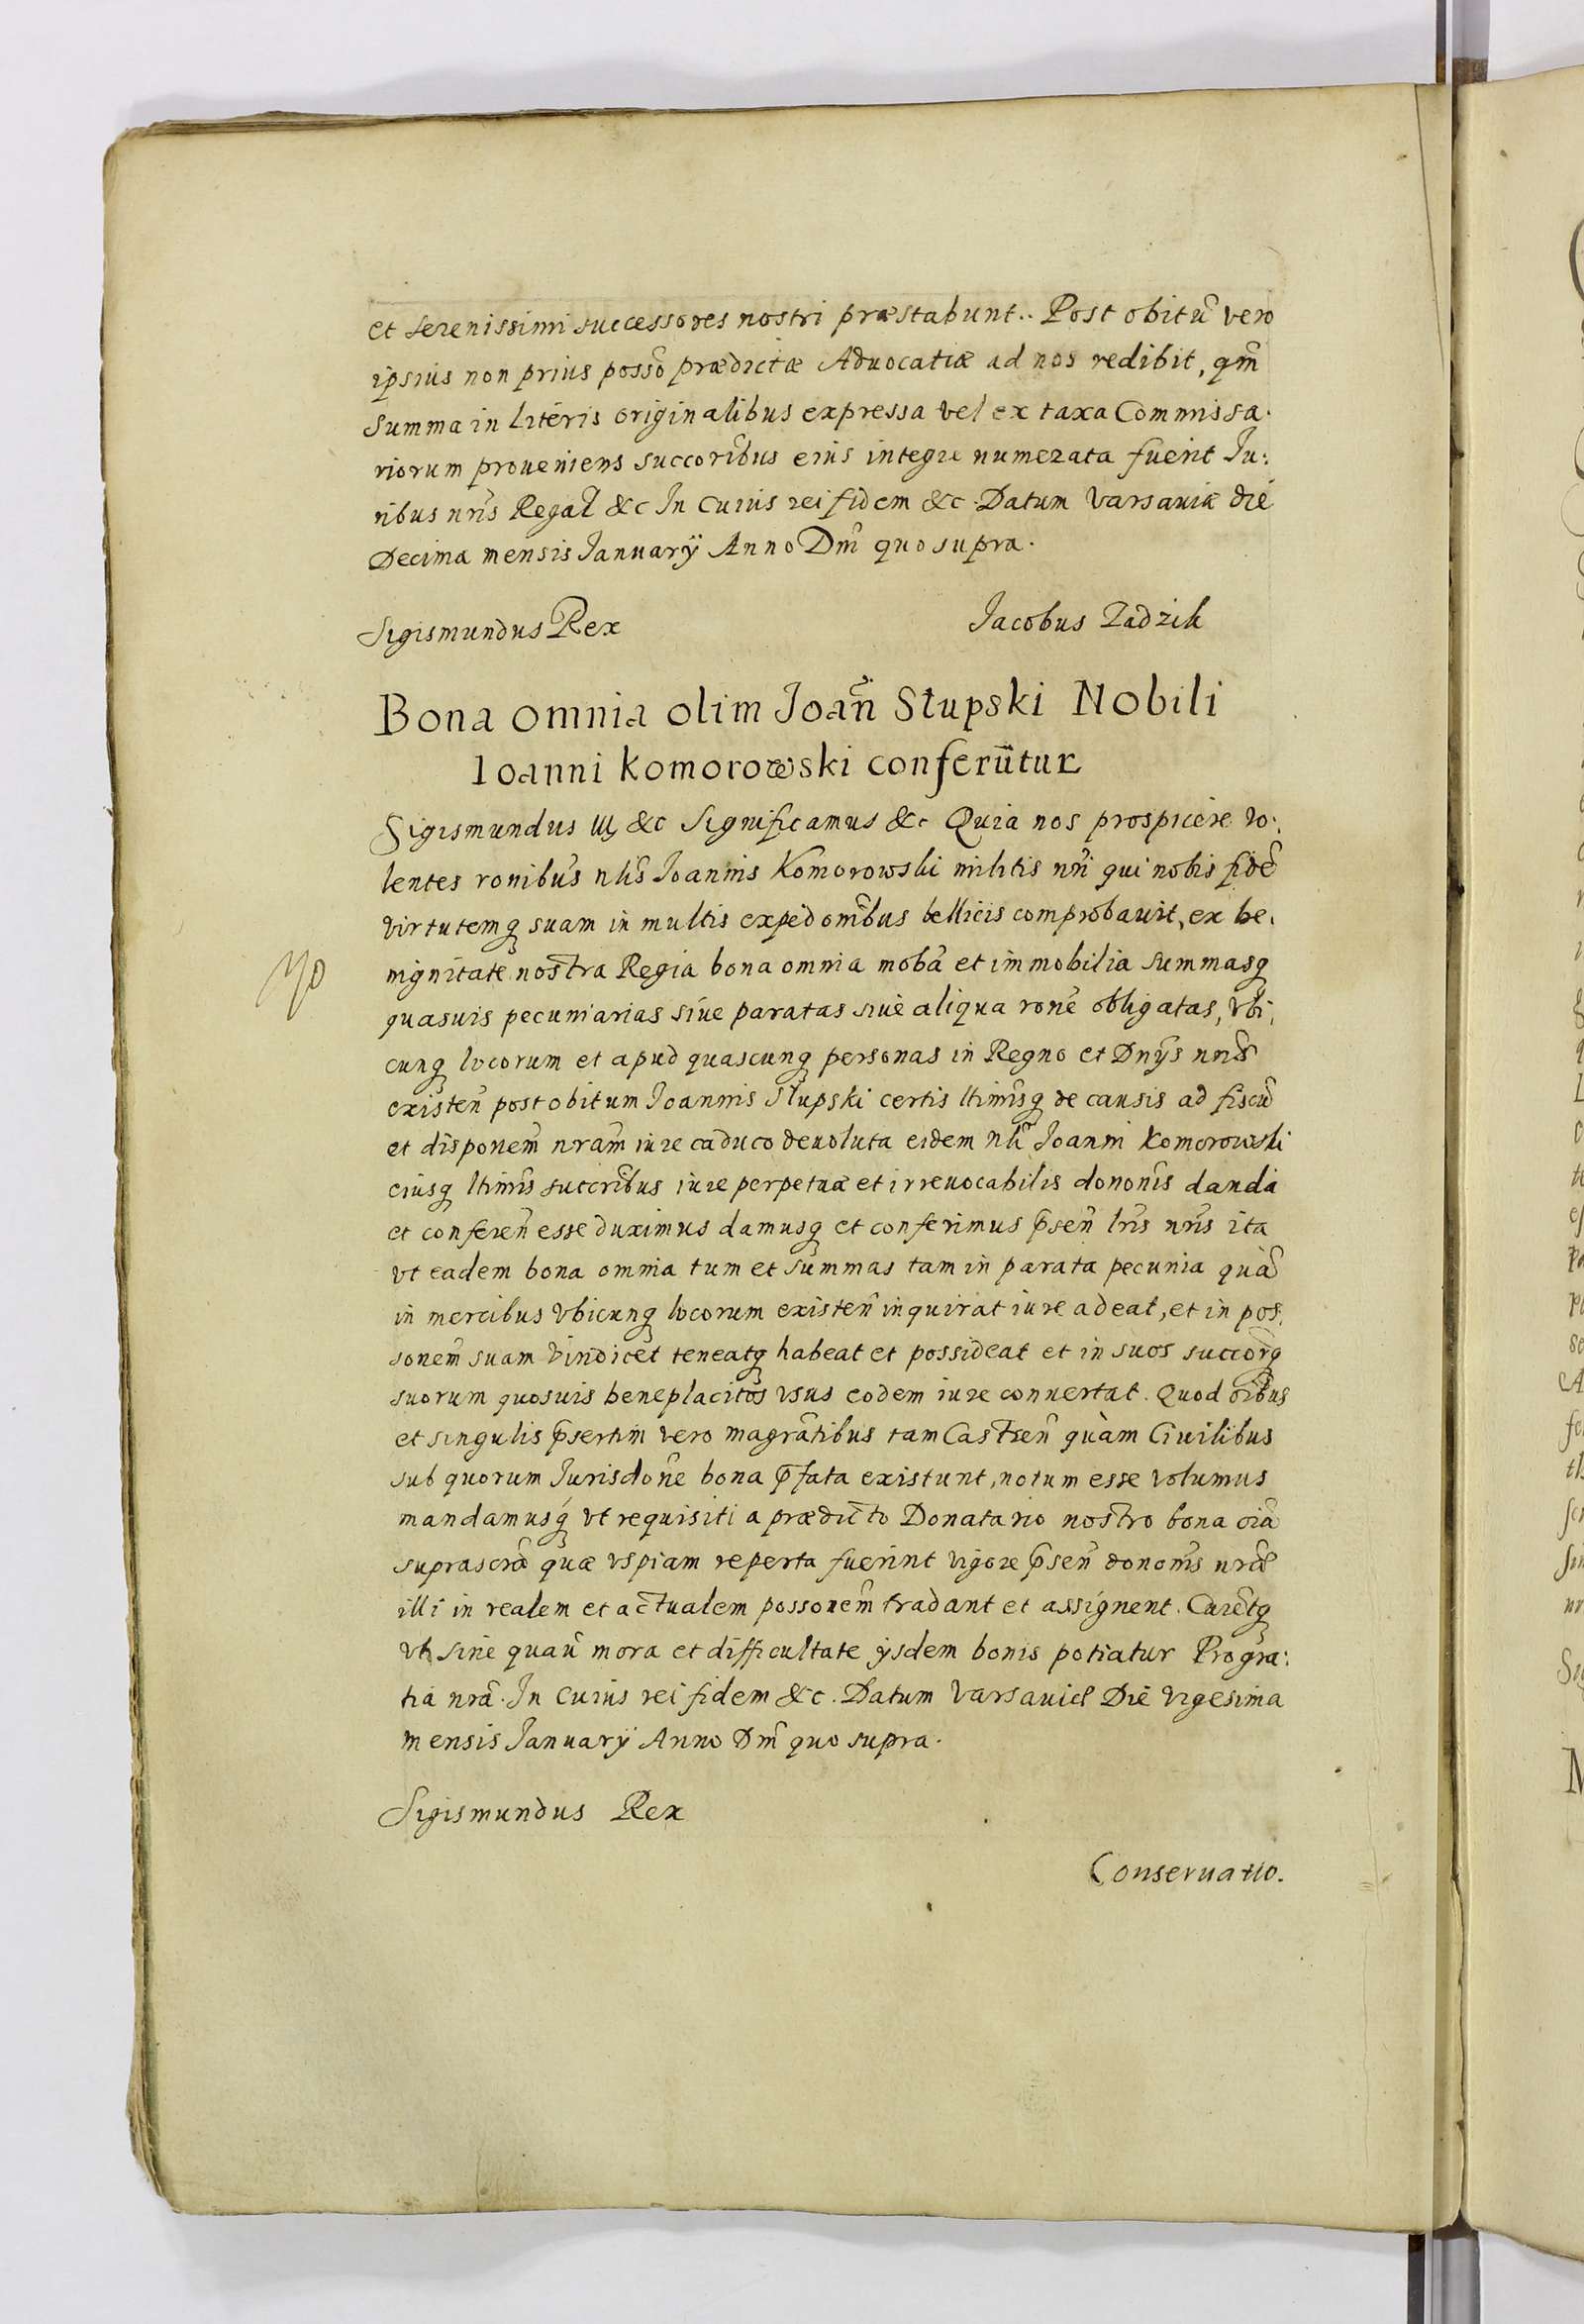 et serenissimi successores nostri præstabunt.. Post obitũ vero
ipsius non prius possõ prædictæ Aduocatiæ ad nos redibit, qm̃
Summa in literis originalibus expressa vel ex taxa Commissa.
riorum proueniens succorĩbus eius integre numerata fuerit Ju:
ribus nrĩs Regal̃ &c In cuius rei fidem &c. Datum Varsauiæ die
Decima mensis Januarÿ Anno Dm̃ quo supra.
Sigismundus Rex
Jacobus Zadzik
Bona omnia olim Joañ Słupski Nobili
Ioanni Komorowski conferũtur
Sigismundus III &c Significamus &c Quia nos prospicere vo:
lentes ronibus̃ nlĩs Joannis Komorowski militis nrĩ qui nobis fidẽ
virtutemq̃ suam in multis expedonĩbus bellicis comprobauit, ex be.
nignitate nostra Regia bona omnia mobã et immobilia summasq̃
quasuis pecuniarias siue paratas siue aliqua ronẽ obligatas, vbi,
cunq̃ locorum et apud quascunq̃ personas in Regno et Dnÿs nrĩs
existeñ post obitum Joannis Słupski certis ltimĩsq̃ de causis ad fiscũ
et disponem̃ nram̃ iure caduco deuoluta eidem nlĩ Joanni Komorowski
eiusq̃ ltimĩs succrĩbus iure perpetuæ et irreuocabilis dononĩs danda
et confereñ esse duximus damusq̃ et conferimus p̃señ lrĩs nrĩs ita
vt eadem bona omnia tum et summas tam in parata pecunia quã
in mercibus vbicunq̃ locorum existeñ inquirat iure adeat, et in pos:
sonem̃ suam vindicet teneatq̃ habeat et possideat et in suos succorq̃
suorum quosuis beneplacitos vsus eodem iure conuertat. Quod oĩbus
et singulis p̃sertim vero magrãtibus tam Castreñ quàm Ciuilibus
sub quorum Jurisdonẽ bona p̃fata existunt, notum esse volumus
mandamusq̃ vt requisiti a prædicto Donatario nostro bona oĩa
suprascrã quæ vspiam reperta fuerint vigore p̃señ dononĩs nræ̃
illi in realem et actualem possonem̃ tradant et assignent. Curẽtq̃
vt sine quaũ mora et difficultate ÿsdem bonis potiatur Pro gra:
tia nrã. In cuius rei fidem &c. Datum Varsauiæ Die vigesima
mensis Januarÿ Anno Dm̃ quo supra.
Sigismundus Rex
Conseruatio.